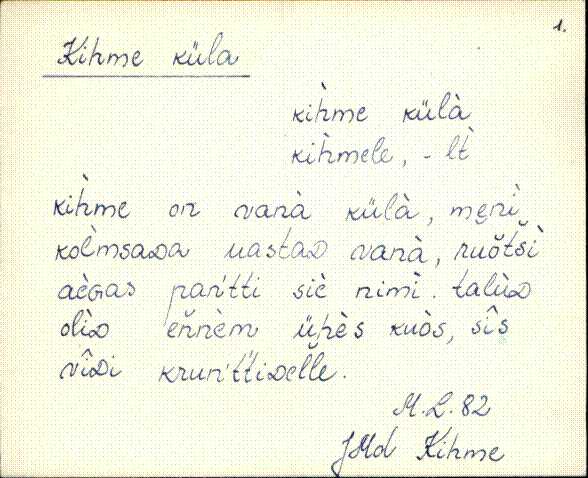 1.
Kihme küla
kìhme külà
kìhmele, -lt̀
kìhme on vanà külà, meni
kolmsaDa uastaD vanà, ruòtši
aèGas pan'tti siè nimì. talùD
olìD eňnèm ühès kuòs, sîs
vîDi krun'ttiDelle.
M.L. 82
JMd Kihme